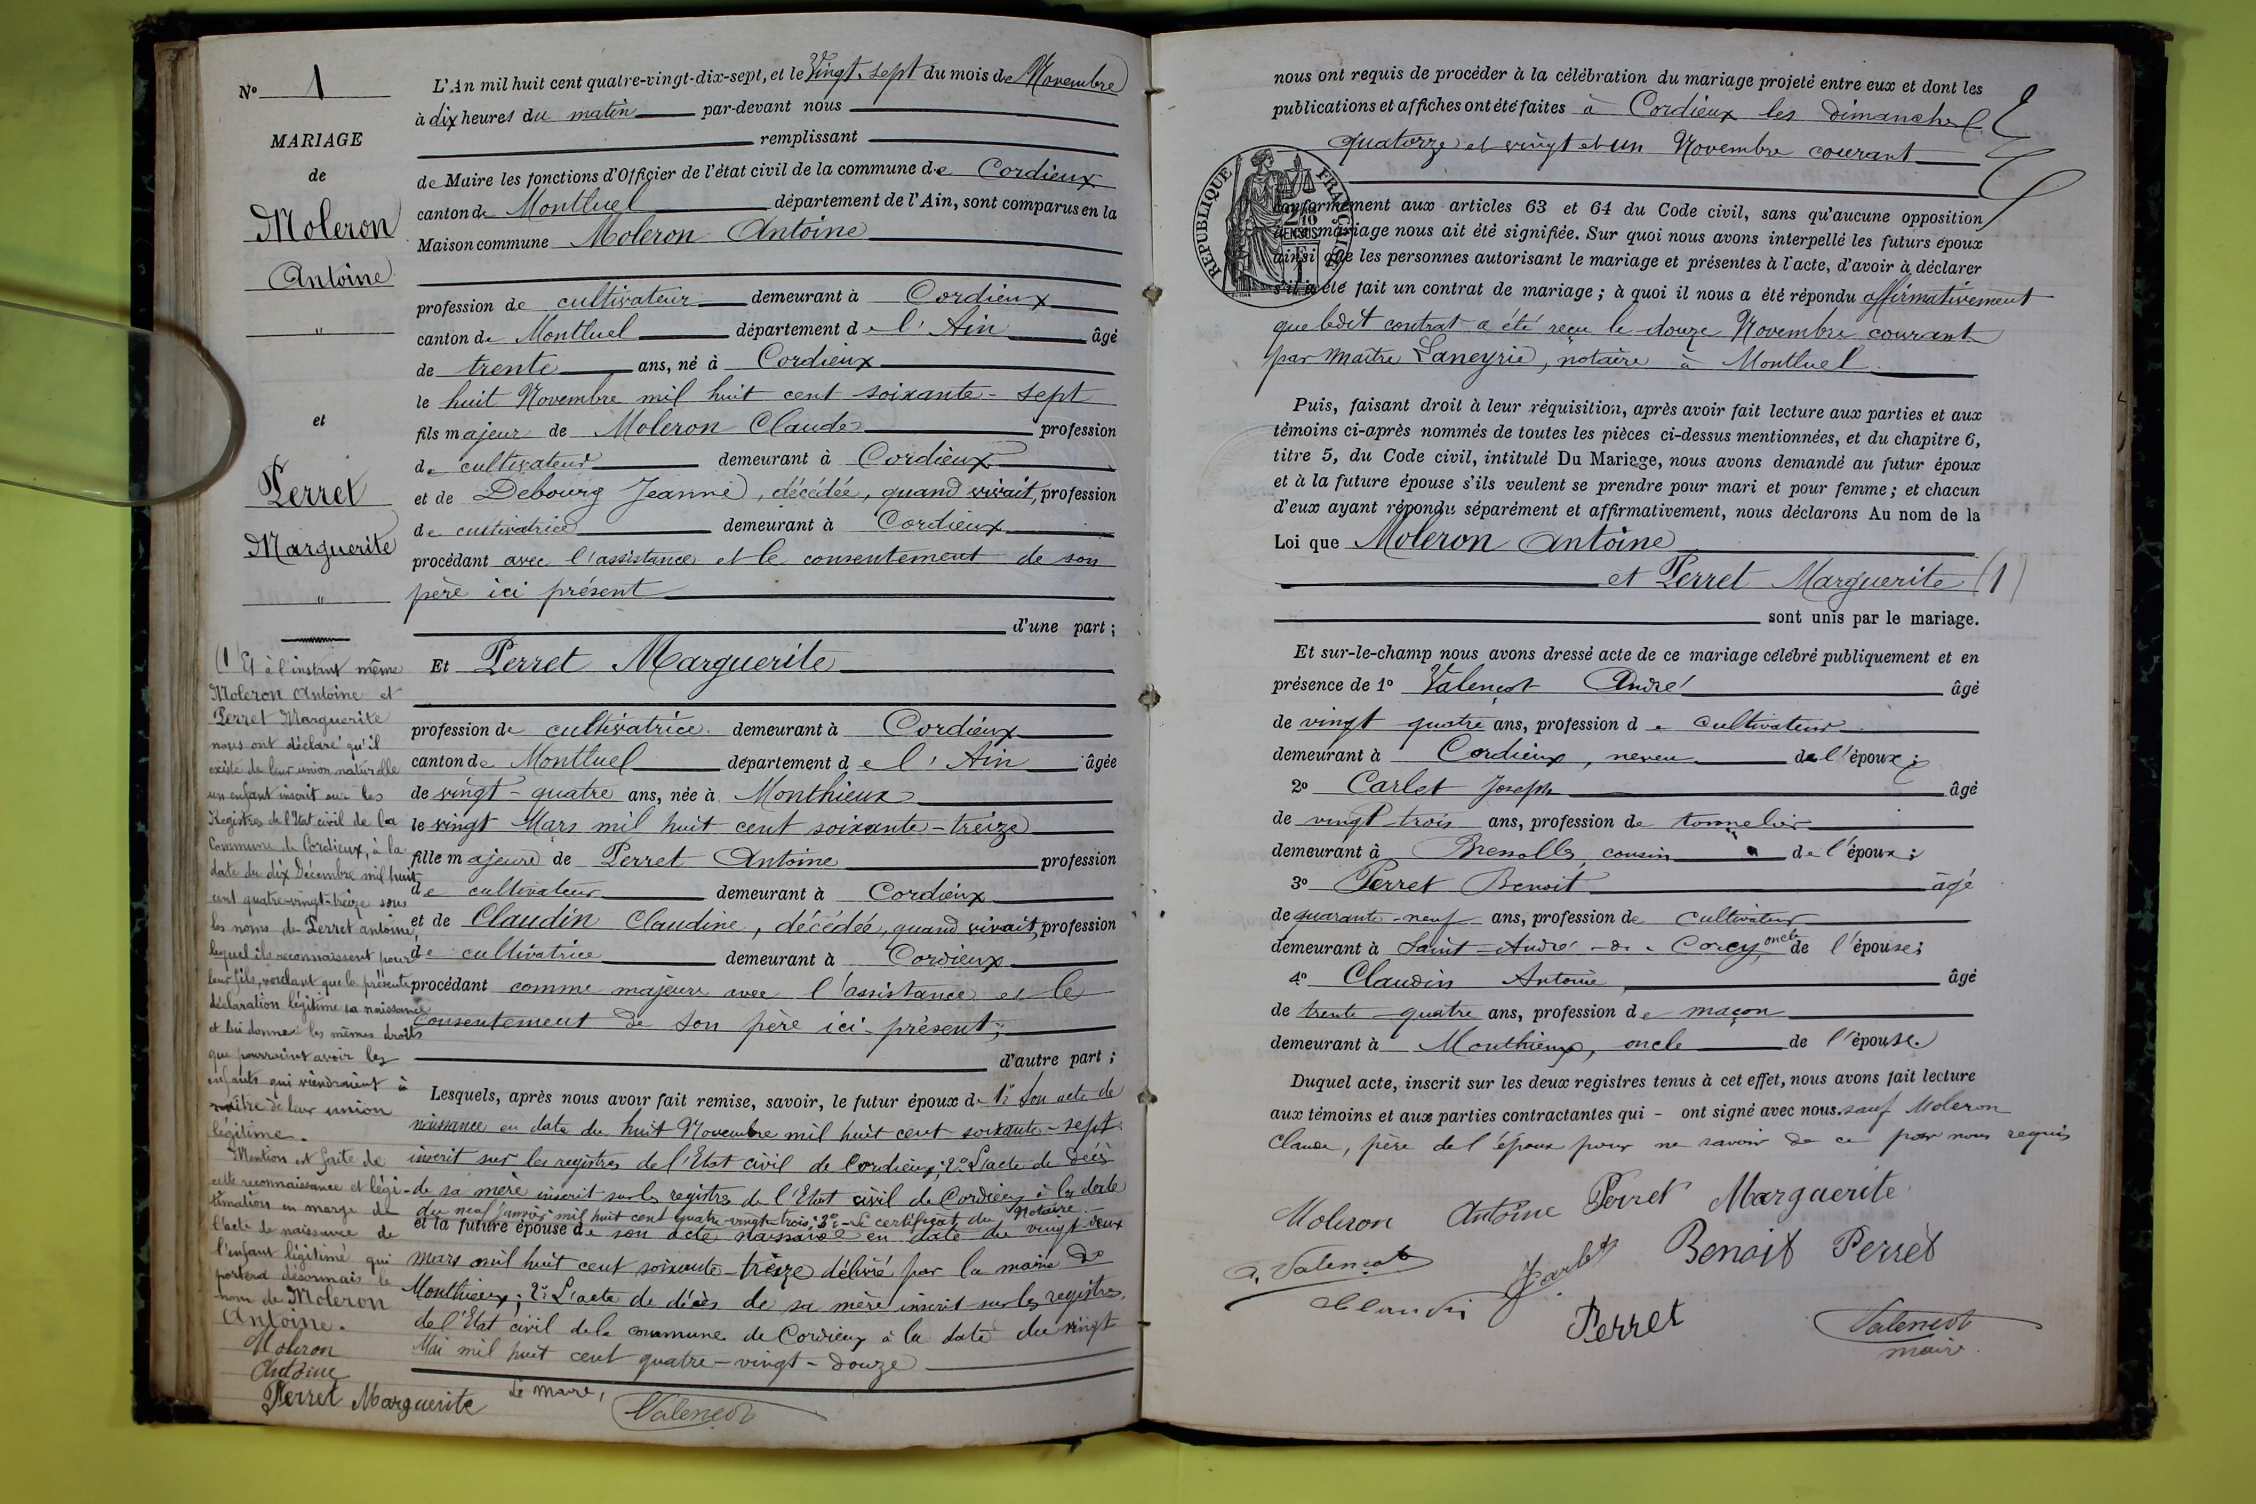 N° 1
MARIAGE
de
Moleron
Antoine
"
et
Perret
Marguerite
"
(1) Et à l'instant même
Moleron Antoine et
Perret Marguerite
nous ont déclaré qu'il
existe de leur union naturelle
un enfant inscrit sur les
Registres de l'Etat civil de la
Commune de Cordieux, à la
date du dix Décembre mil huit
cent quatre-vingt-treize sous
les noms de Perret antoine,
lequel ils reconnaissent pour
leur fils, voulant que la présente
déclaration légitime sa naissance
et lui donne les mêmes droits
que pourraient avoir les
enfants qui viendraient à
naître de leur union
légitime.
Mention est faite de
cette reconnaissance et légi-
timation en marge de
l'acte de naissance de
l'enfant légitimé qui
portera désormais le
nom de Moleron
Antoine.
Moleron
Antoine
Perret Marguerite
Le maire,
Valençot
L'An mil huit cent quatre-vingt-dix-sept, et le Vingt-sept du mois de Novembre
à dix heures du matin par-devant nous
remplissant
de Maire les fonctions d'Officier de l'état civil de la commune de Cordieux
canton de Montluel département de l'Ain, sont comparus en la
Maison commune Moleron Antoine
profession de cultivateur demeurant à Cordieux
canton de Montluel département de l'Ain âgé
de trente ans, né à Cordieux
le huit Novembre mil huit cent soixante-sept
fils majeur de Moleron Claude profession
de cultivateur demeurant à Cordieux
et de Debourg Jeanne, décédée, quand vivait, profession
de cultivatrice demeurant à Cordieux
procédant avec l'assistance et le consentement de son
père ici présent
d'une part;
Et Perret Marguerite
profession de cultivatrice demeurant à Cordieux
canton de Montluel département de l'Ain âgée
de vingt-quatre ans, née à Monthieux
le vingt Mars mil huit cent soixante-treize
fille majeure de Perret Antoine profession
de cultivateur demeurant à Cordieux
et de Claudin Claudine, décédée, quand vivait, profession
de cultivatrice demeurant à Cordieux
procédant comme majeure avec l'assistance et le
consentement de son père ici présent;
d'autre part;
Lesquels, après nous avoir fait remise, savoir, le futur époux de 1° son acte de
naissance en date du huit Novembre mil huit cent soixante-sept
inscrit sur les registres de l'Etat civil de Cordieux; 2° L'acte de décès
de sa mère inscrit sur les registres de l'Etat civil de Cordieux à la date
du neuf janvier mil huit cent quatre-vingt-trois; 3° Le certificat du Notaire.
et la future épouse de son acte naissance en date du vingt-deux
mars mil huit cent soixante-treize délivré par la mairie de
Monthieux; 2° L'acte de décès de sa mère inscrit sur les registres
de l'Etat civil de la commune de Cordieux à la date du vingt
Mai mil huit cent quatre-vingt-douze
nous ont requis de procéder à la célébration du mariage projeté entre eux et dont les
publications et affiches ont été faites à Cordieux les dimanches
quatorze et vingt et un Novembre courant
REPUBLIQUE FRANÇAISE
conformément aux articles 63 et 64 du Code civil, sans qu'aucune opposition
au mariage nous ait été signifiée. Sur quoi nous avons interpellé les futurs époux
ainsi que les personnes autorisant le mariage et présentes à l'acte, d'avoir à déclarer
s'il a été fait un contrat de mariage; à quoi il nous a été répondu affirmativement
que ledit contrat a été reçu le douze Novembre courant
par Maître Laneyrie, notaire à Montluel
Puis, faisant droit à leur réquisition, après avoir fait lecture aux parties et aux
témoins ci-après nommés de toutes les pièces ci-dessus mentionnées, et du chapitre 6,
titre 5, du Code civil, intitulé Du Mariage, nous avons demandé au futur époux
et à la future épouse s'ils veulent se prendre pour mari et pour femme; et chacun
d'eux ayant répondu séparément et affirmativement, nous déclarons Au nom de la
Loi que Moleron Antoine
et Perret Marguerite (1)
sont unis par le mariage.
Et sur-le-champ nous avons dressé acte de ce mariage célébré publiquement et en
présence de 1° Valençot André âgé
de vingt quatre ans, profession de cultivateur
demeurant à Cordieux, neveu de l'époux;
2° Carlet Joseph âgé
de vingt-trois ans, profession de tonnelier
demeurant à Bressolles, cousin de l'époux;
3° Perret Benoit âgé
de quarante-neuf ans, profession de cultivateur
demeurant à Saint-André-de-Corcy, oncle de l'épouse;
4° Claudin Antoine, âgé
de trente-quatre ans, profession de maçon
demeurant à Monthieux, oncle de l'épouse
Duquel acte, inscrit sur les deux registres tenus à cet effet, nous avons fait lecture
aux témoins et aux parties contractantes qui - ont signé avec nous. sauf Moleron
Claude, père de l'époux pour ne savoir de ce par nous requis
Moleron Antoine Perret Marguerite
A. Valençot J. Carlet Benoit Perret
Claudin Perret Valençot
maire